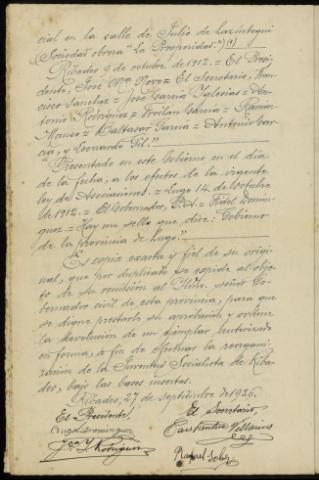 cial en la calle de Julio de Lazúrtegui
(Sociedad obrera "La Prosperidad.") (1)
Ribadeo 9 de octubre de 1912. = El Presi-
dente, José Mª = El Secretario, Fran-
cisco Sanchez = José García Iglesias = An-
tonio Rodriguez = Froilan García = Ramón
= Baltasar García = Antonio Gar-
cía, y Leonardo Gil."
"Presentado en este Gobierno en el día
de la fecha, a los efectos de la vigente
ley de Asociaciones. = Lugo 14 de Octubre
de 1912. = El Gobernador, P.A. = Fidel Domin-
guez = Hay un sello que dice: Gobierno
de la provincia de Lugo."
Es copia exacta y fiel de su origi-
nal, que por duplicado se expide al obje-
to de su remisión al señor Go-
bernador civil de esta provincia, para que
se digne prestarle su aprobación y ordene
la devolución de un ejemplar autorizado
en forma, a fin de efectuar la reorgani-
zación de la Juventud Socialista de Riba-
deo, bajo las bases insertas.
Ribadeo, 27 de septiembre de 1926.
El Presidente, El Secretario,
Constantino
Rodriguez
Rafael